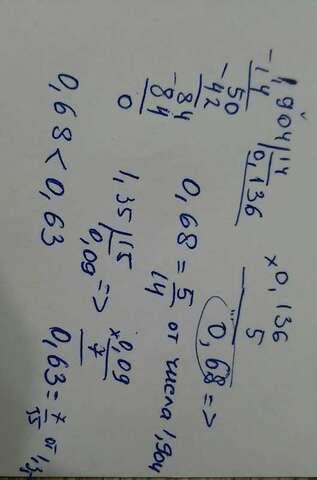 1,904 | 14
-1,4 | 0,136
50
-42
-84
84
0
x 0,136
5
0,68 =>
0,68 = 5/14 от числа 1,904
1,35 | 15
0,09 =>
x 0,09
7
0,63 = 7/15 от 1,35
0,68 < 0,63